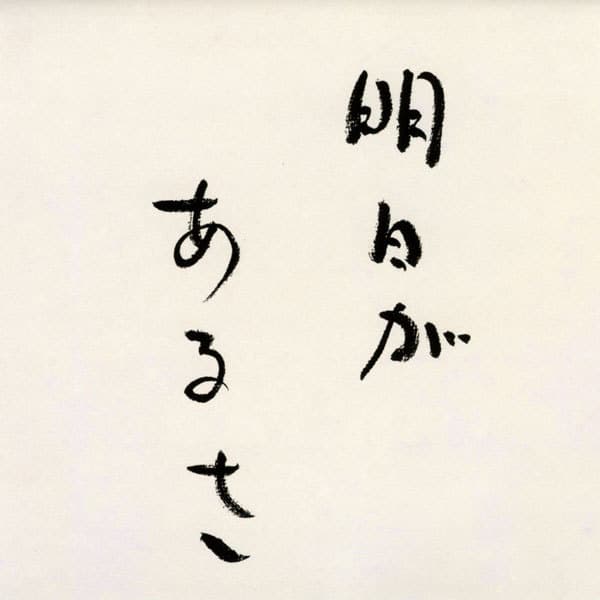 明日が
あるさ